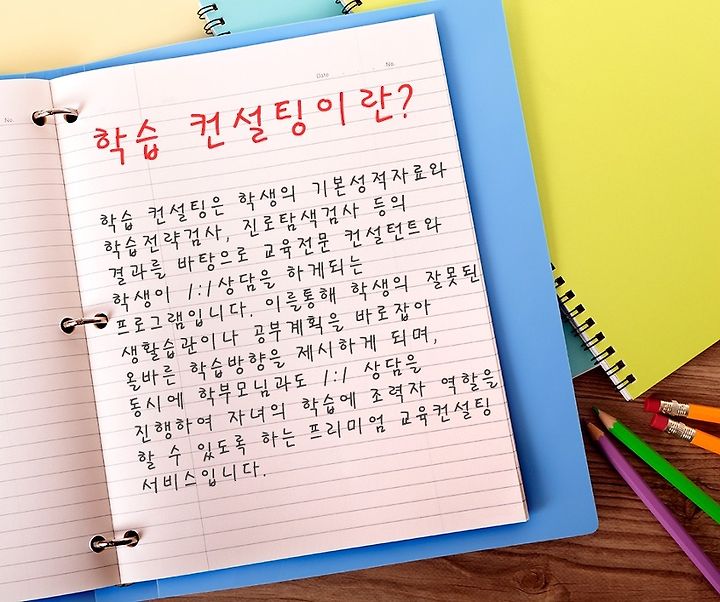 No.
Date
No.
학습 컨설팅이란?
학습 컨설팅은 학생의 기본성적자료와
학습전략검사, 진로탐색검사 등의
결과를 바탕으로 교육전문 컨설턴트와
학생이 1:1상담을 하게되는
프로그램입니다. 이를통해 학생의 잘못된
생활습관이나 공부계획을 바로잡아
올바른 학습방향을 제시하게 되며,
동시에 학부모님과도 1:1 상담을
진행하여 자녀의 학습에 조력자 역할을
할 수 있도록 하는 프리미엄 교육컨설팅
서비스입니다.